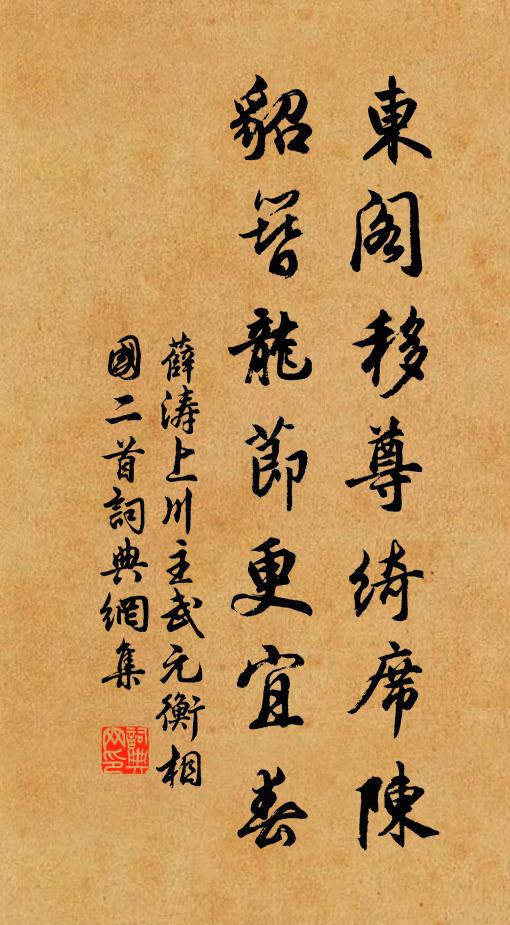 東閣移尊綺席陳
貂簪龍節更宜春
薛濤上川主武元衡相
國二首詞典網集
詞典网印